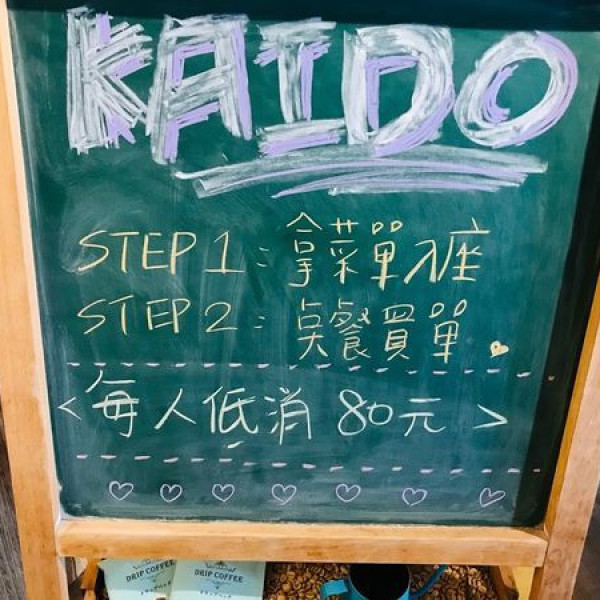 KAIDO
STEP 1：拿菜單入座
STEP 2：點餐買單
<每人低消 80元>
DRIP COFFEE
DRIP COFFEE